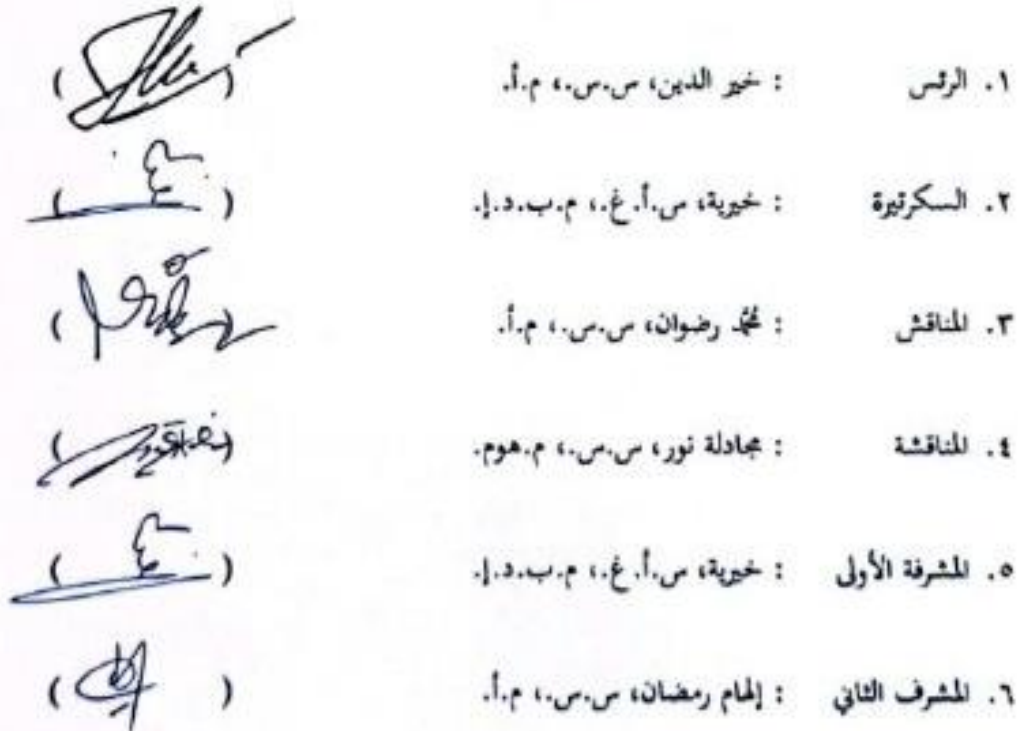 ١. الرئس : خير الدين، س.س.، م.أ. ( )
٢. السكرتيرة : خيرية، س.أ.غ.، م.ب.د.إ. ( )
٣. المناقش : محمّد رضوان، س.س.، م.أ. ( )
٤. المناقشة : مجادلة نور، س.س.، م.هوم. ( )
٥. المشرفة الأولى : خيرية، س.أ.غ.، م.ب.د.إ. ( )
٦. المشرف الثاني : إلهام رمضان، س.س.، م.أ. ( )